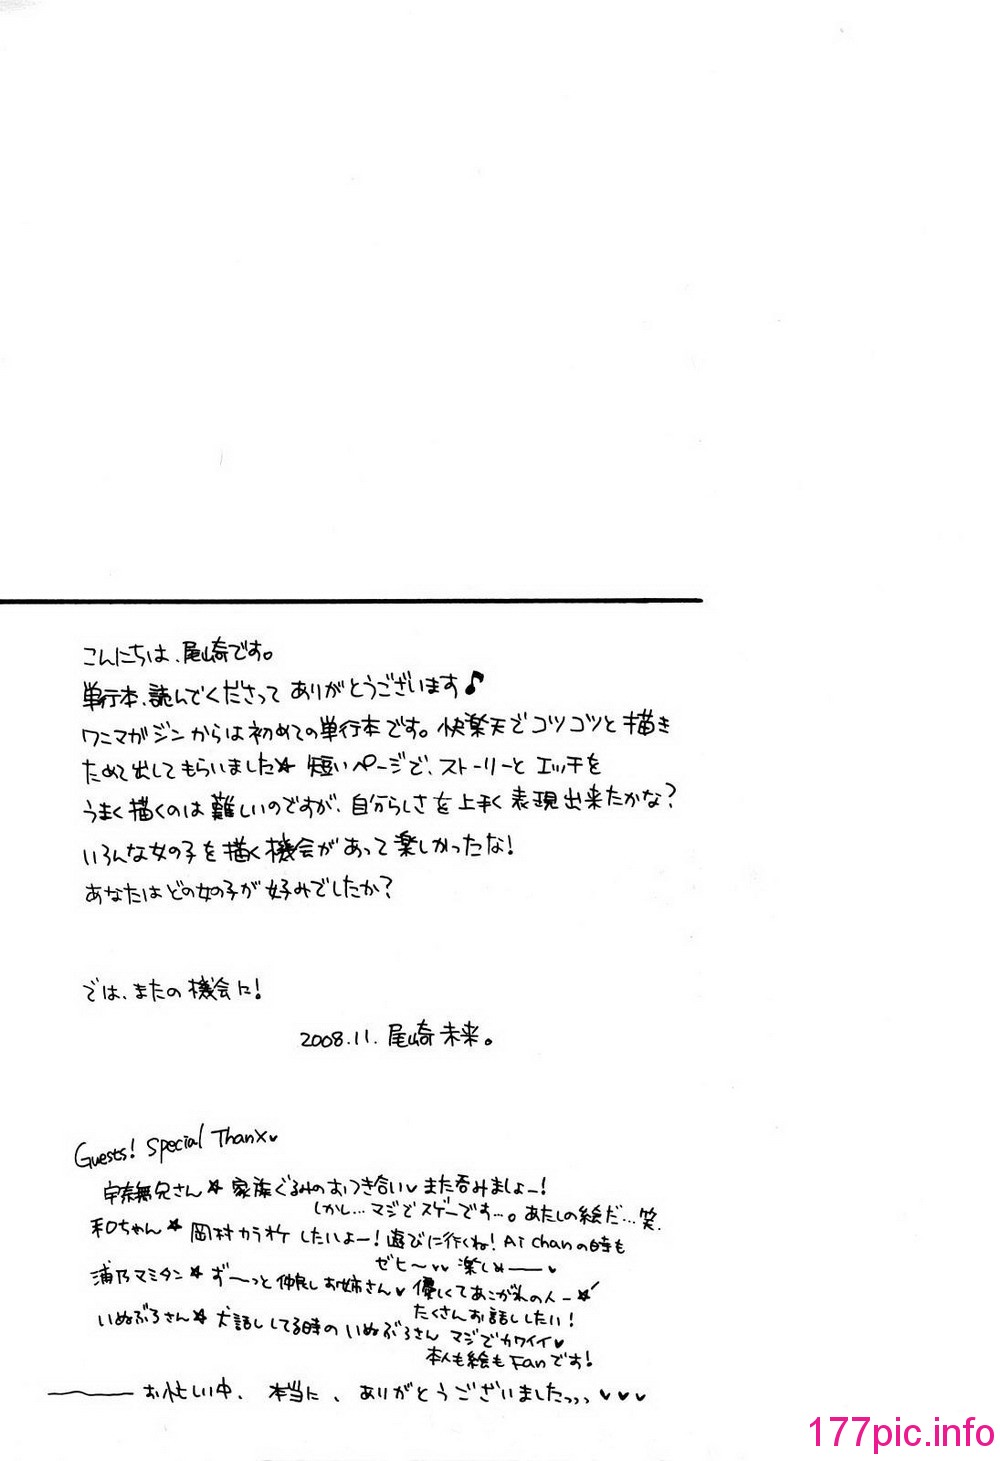 こんにちは、尾崎です。
単行本、読んでくださって ありがとうございます♪
ワニマガジンからは初めての単行本です。快楽天でコツコツと描き
ためて出してもらいました☆ 短いページで、ストーリーと エッチを
うまく描くのは難しいのですが、自分らしさを上手く表現出来たかな?
いろんな女の子を描く機会があって楽しかったな!
あなたはどの女の子が好みでしたか?
では、またの機会に!
2008.11. 尾崎未来。
Guests! Special Thanx♥
宇奈無兄さん☆ 家族ぐるみのおつき合い♥また呑みましょー!
しかし…マジでスゲーです…。あたしの絵だ…笑.
和ちゃん☆ 岡村カラオケしたいよー!遊びに行くね! Ai chanの時も
ゼヒ〜♥♥ 楽しめー♥
浦乃マミタン☆ ず〜っと仲良しお姉さん♥ 優しくてあこがれの人ー☆
たくさんお話ししたい!
いぬぶろさん☆ 犬話ししてる時のいぬぶろさん マジでカワイイ♥
本人も絵もFanです!
お忙しい中、本当に、ありがとうございましたっっっ♥♥♥
177pic.info